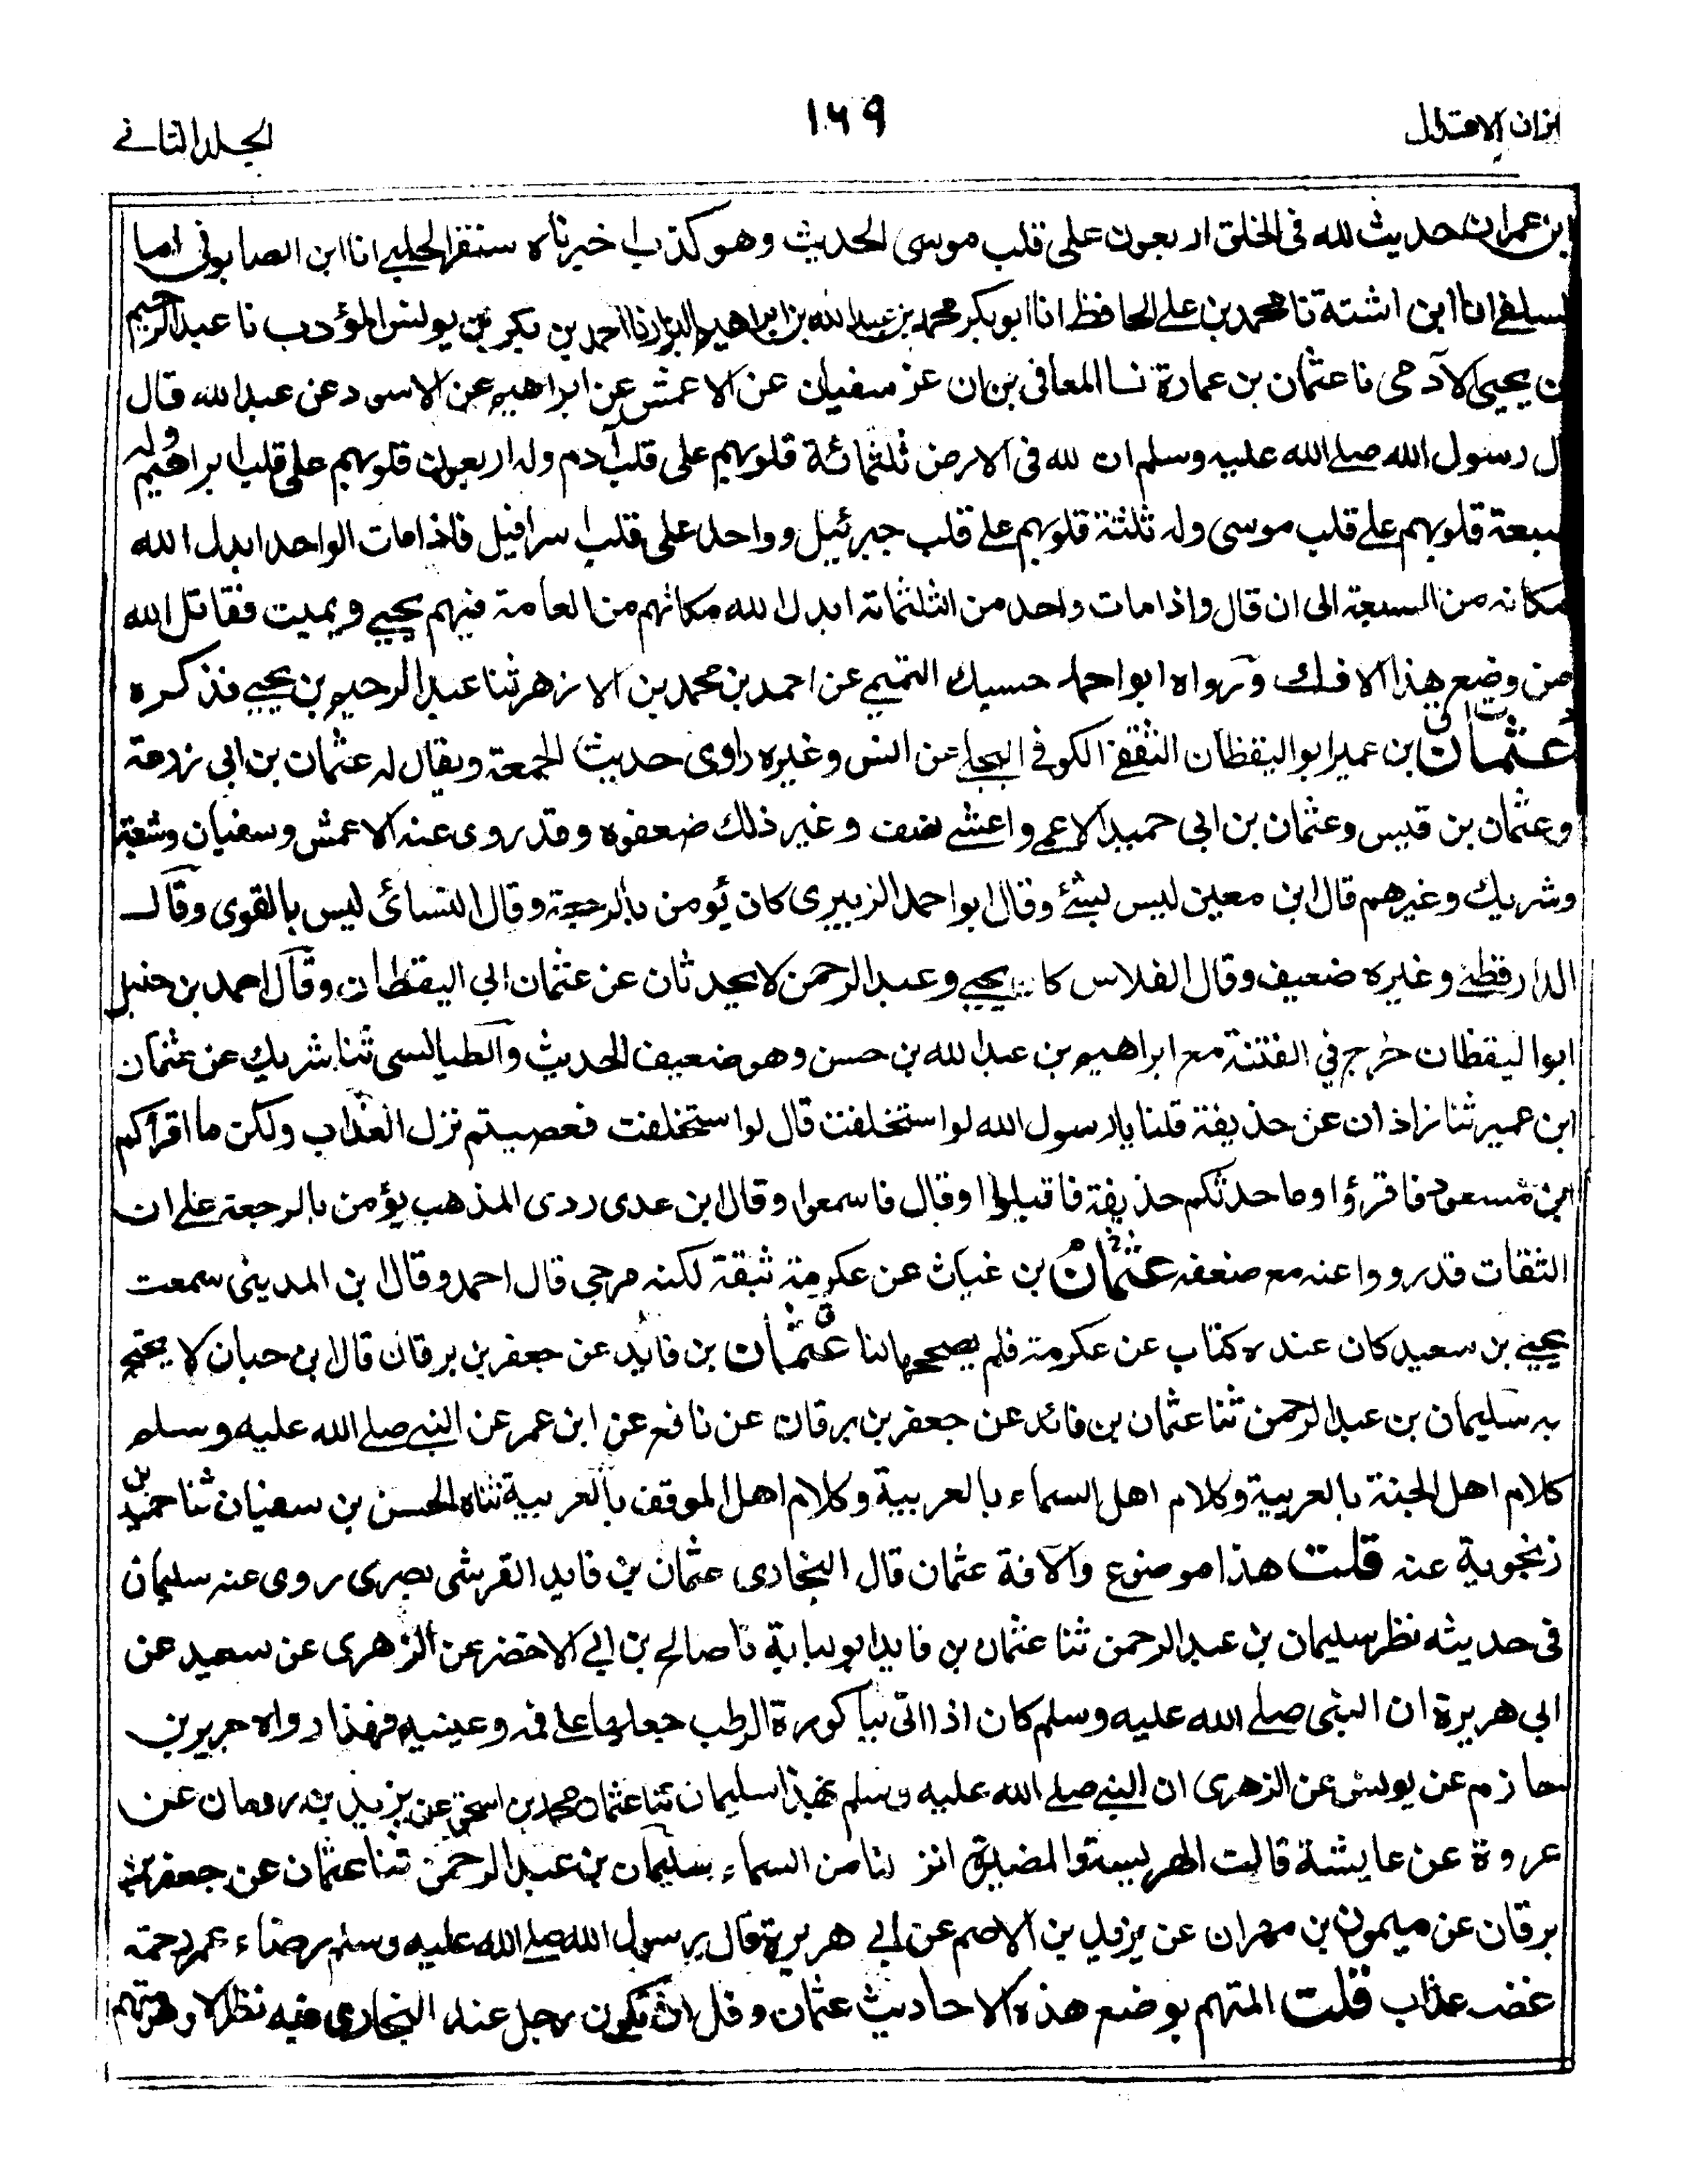 ميزان الاعتدال
١٦٩
الجلد الثانے
بن عمران حديث لله فى الخلق اربعون على قلب موسى الحديث وهو كذب اخبرناه سنقر الحلبے انا ابن الصابونى انا
السلفے انا ابن اشتة نا محمد بن علے الحافظ انا ابو بكر محمد بن عبد الله بن ابراهيم البزار نا احمد بن بكر بن يونس المؤدب نا عبد الرحيم
بن يحيى الآدمى نا عثمان بن عمارة نا المعافى بن عن سفيان عن الاعمش عن ابراهيم عن الاسود عن عبد الله قال
ال رسول الله صلے الله عليه وسلم ان لله فى الارض ثلثمائة قلوبهم على قلب آدم وله اربعون قلوبهم على قلب ابراهيم وله
سبعة قلوبهم علے قلب موسى وله ثلثة قلوبهم علے قلب جبرئيل وواحد على قلب اسرافيل فاذا مات الواحد ابدل الله
مكانه من السبعة الى ان قال واذا مات واحد من الثلثمائة ابدل الله مكانهم من العامة فبهم يحيے ويميت فقاتل الله
من وضع هذا الافك ورواه ابو احمد حسينك التميمے عن احمد بن محمد بن الازهر ثنا عبد الرحيم بن يحيے فذكره
عثمان بن عمير ابو اليقظان الثقفے الكوفے البجلے عن انس وغيره راوى حديث الجمعة ويقال له عثمان بن ابي زرعة
وعثمان بن قيس وعثمان بن ابى حميد الاعمے واعشے نصف وغير ذلك ضعفوه وقد روى عنه الاعمش وسفيان وشعبة
وشريك وغيرهم قال ابن معين ليس بشئے وقال ابو احمد الزبيرى كان يؤمن بالرجعة وقال النسائى ليس بالقوى وقال
الدارقطنے وغيره ضعيف وقال الفلاس كان يحيے وعبد الرحمن لا يحدثان عن عثمان ابي اليقظان وقال احمد بن حنبل
ابو اليقظان خرج في الفتنة مع ابراهيم بن عبد الله بن حسن وهو ضعيف الحديث والطيالسى ثنا شريك عن عثمان
ابن عمير ثنا زاذان عن حذيفة قلنا يا رسول الله لو استخلفت قال لو استخلفت فعصيتم نزل العذاب ولكن ما اقرأكم
ابن مسعود فاقرؤا وما حدثكم حذيفة فاقبلوا او قال فاسمعوا وقال ابن عدى ردى المذهب يؤمن بالرجعة علے ان
الثقات قد رووا عنه مع ضعفه عثمان بن غياث عن عكرمة ثبقة لكنه مرجى قال احمد وقال ابن المدينى سمعت
يحيے بن سعيد كان عنده كتاب عن عكرمة فلم يصححها لنا عثمان بن فايد عن جعفر بن برقان قال ابن حبان لا يحتج
به سليمان بن عبد الرحمن ثنا عثمان بن فائد عن جعفر بن برقان عن نافع عن ابن عمر عن النبے صلے الله عليه وسلم
كلام اهل الجنة بالعربية وكلام اهل السماء بالعربية وكلام اهل الموقف بالعربية ثناه الحسن بن سفيان ثنا حميد بن
زنجوية عنه قلت هذا موضوع والآفة عثمان قال البخارى عثمان بن فايد القرشى بصرى روى عنه سليمان
فى حديثه نظر سليمان بن عبد الرحمن ثنا عثمان بن فايد ابو لبابة نا صالح بن ابے الاخضر عن الزهرى عن سعيد عن
ابي هريرة ان النبى صلے الله عليه وسلم كان اذا اتى بباكورة الرطب جعلها علے فمه وعينيه فهذا رواه جرير بن
حازم عن يونس عن الزهرى ان النبے صلے الله عليه وسلم بهذا سليمان ثنا عثمان محمد بن اسحق عن يزيد بن رومان عن
عروة عن عايشة قالت الهريسة والمضيرة انز لنا من السماء سليمان بن عبد الرحمن ثنا عثمان عن جعفر بن
برقان عن ميمون بن مهران عن يزيد بن الاصم عن ابے هريرة قال رسول الله صلے الله عليه وسلم رضاء عمر رحمة
غضبه عذاب قلت المتهم بوضع هذه الاحاديث عثمان وقل ان يكون رجل عند البخارى فيه نظر الا وهو متهم